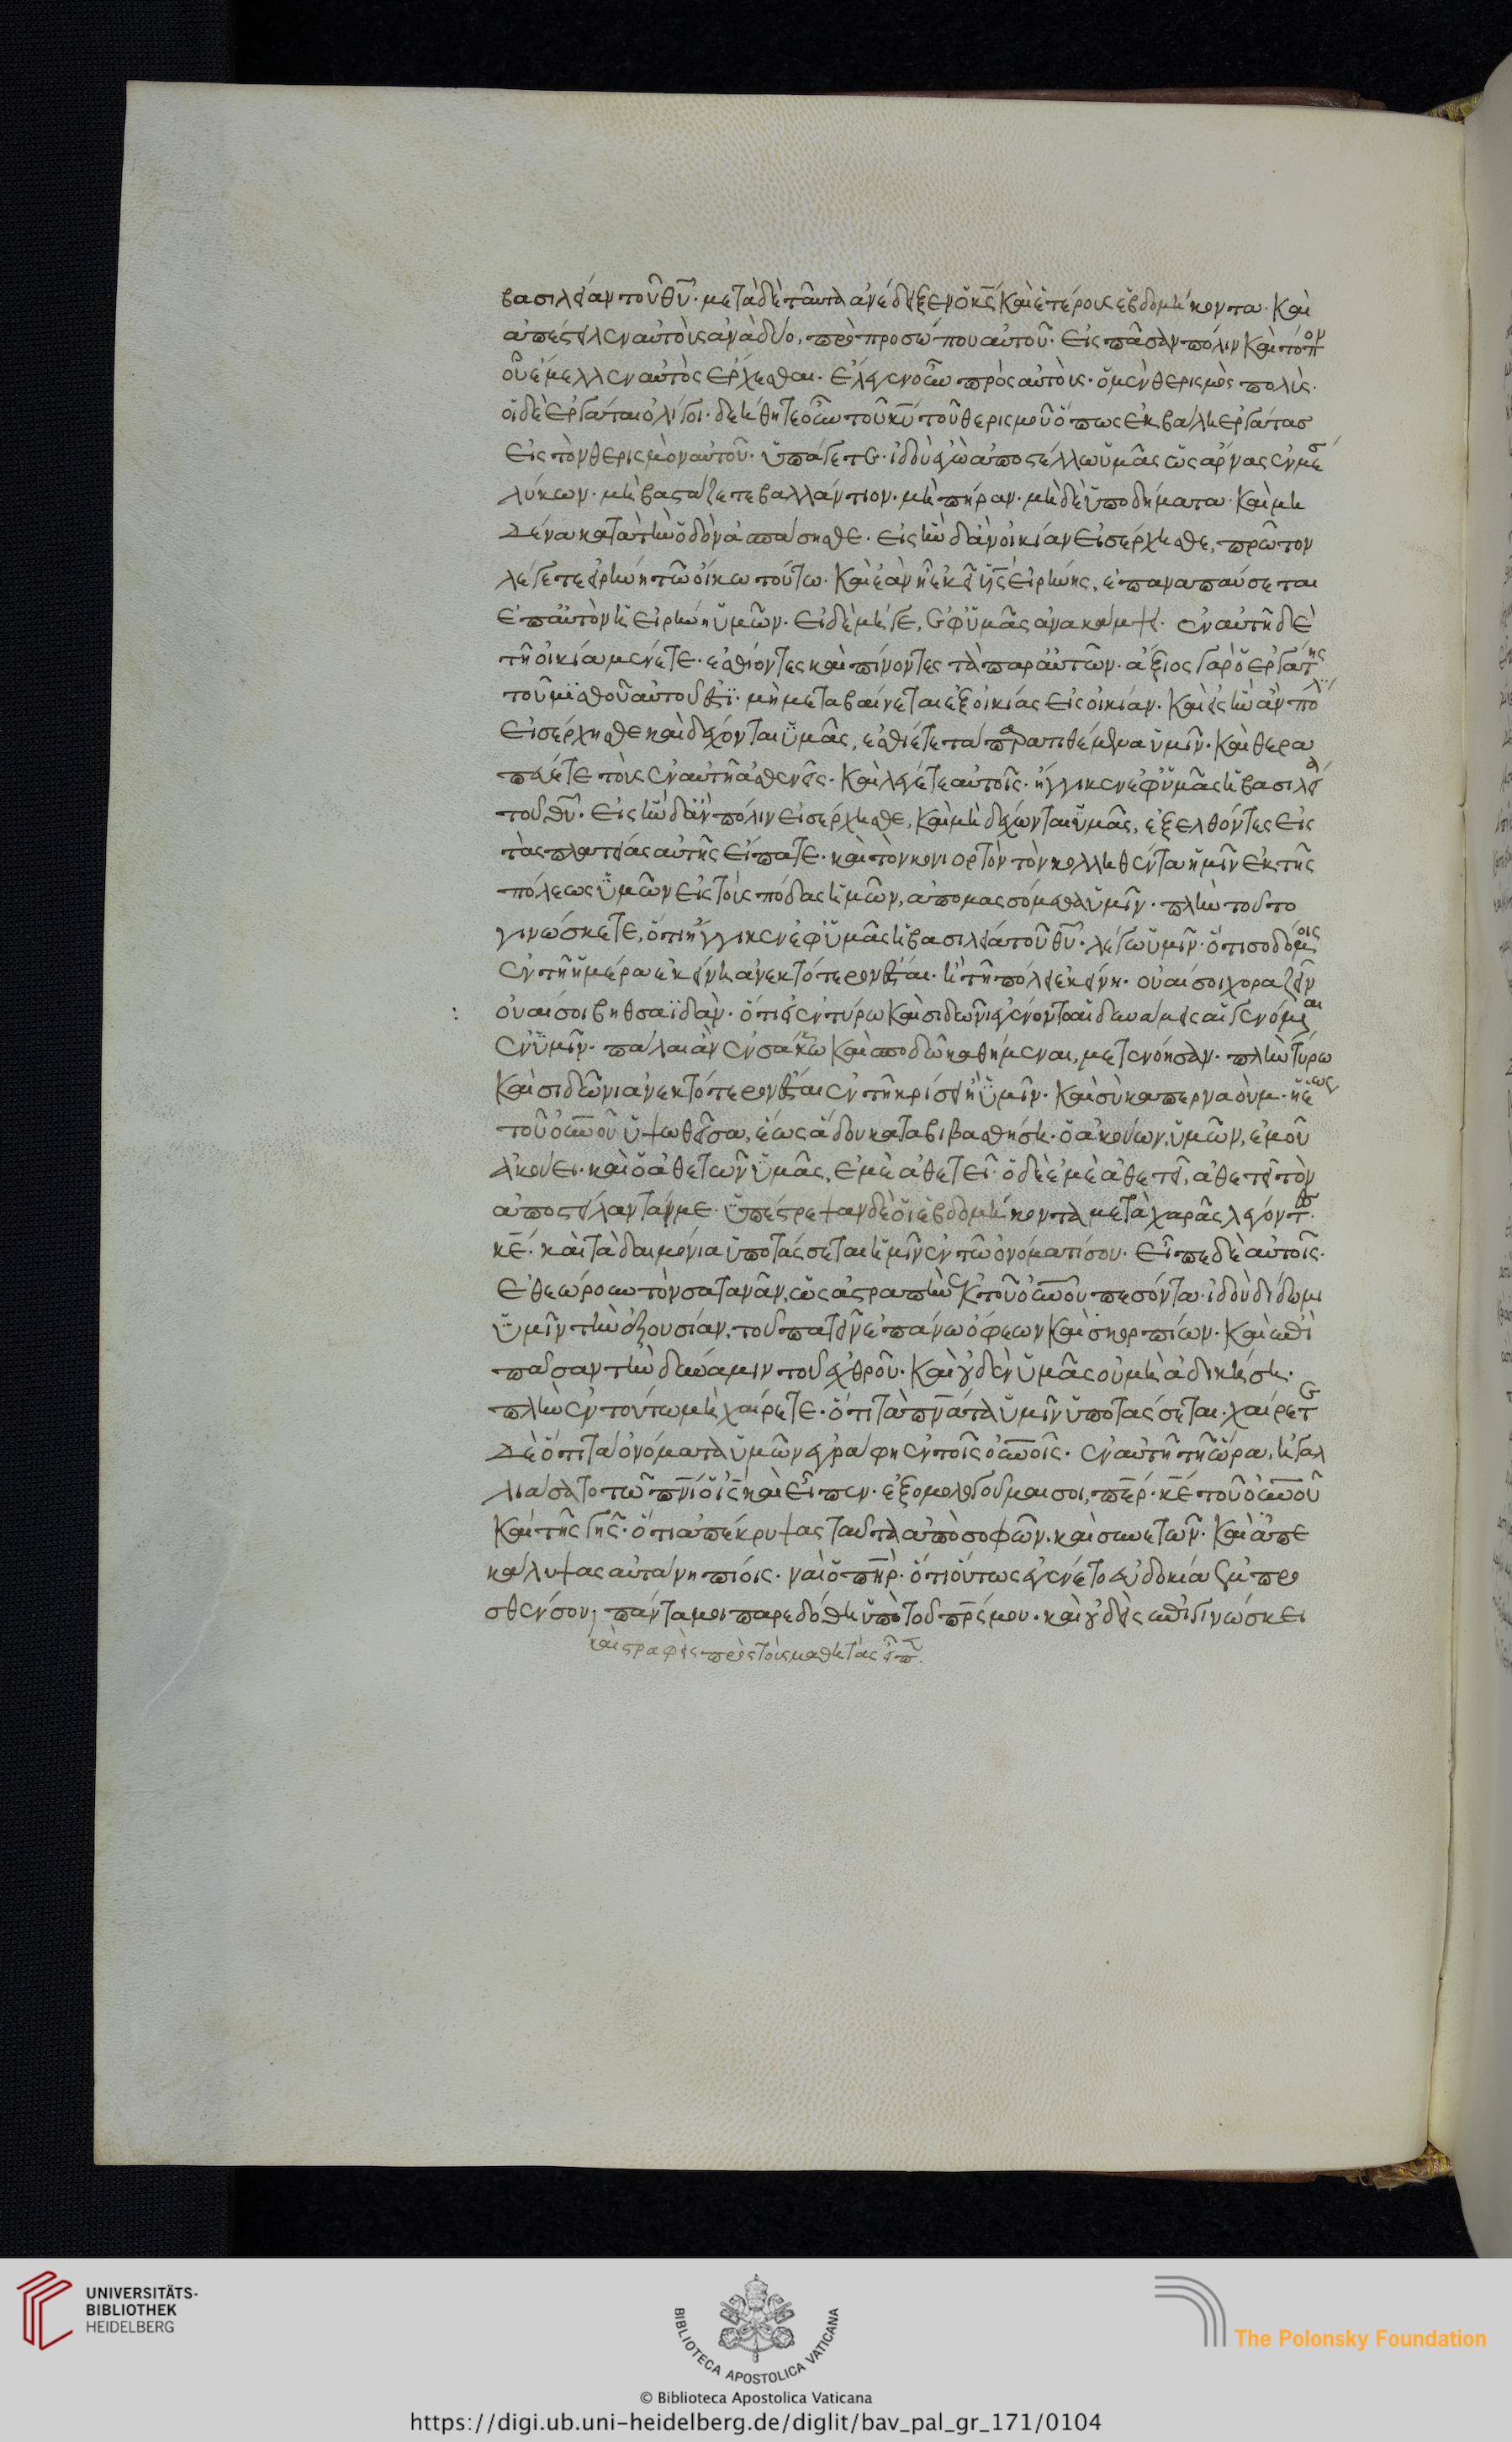 βασιλείαν τοῦ θῦ· μετὰ δὲ ταῦτα ἀνέδειξεν ὁ κς καὶ ἑτέρους ἑβδομήκοντα· καὶ
ἀπέστειλεν αὐτοὺς ἀνὰ δύο, πρὸ προσώπου αὐτοῦ· εἰς πᾶσαν πόλιν καὶ τόπον
οὗ ἔμελλεν αὐτὸς ἔρχεσθαι· ἔλεγεν οὖν πρὸς αὐτούς· ὁ μὲν θερισμὸς πολύς·
οἱ δὲ ἐργάται ὀλίγοι· δεήθητε οὖν τοῦ κυ τοῦ θερισμοῦ ὅπως ἐκβάλη ἐργάτας
εἰς τὸν θερισμὸν αὐτοῦ· ὑπάγετε· ἰδοὺ ἐγὼ ἀποστέλλω ὑμᾶς ὡς ἄρνας ἐν μέσ
λύκων· μὴ βαστάζετε βαλλάντιον· μὴ πήραν· μὴ δὲ ὑποδήματα· καὶ μη
δένα κατὰ τὴν ὁδὸν ἀσπάσησθε· εἰς ἣν δἂν οἰκίαν εἰσέρχησθε, πρῶτον
λέγετε εἰρήνη τῶ οἴκω τούτω· καὶ ἐὰν ἦ ἐκεῖ υς εἰρήνης, ἐπαναπαύσεται
ἐπ αὐτὸν ἡ εἰρήνη ὑμῶν· εἰ δὲ μήγε, ἐφ ὑμᾶς ἀνακάμψει· ἐν αὐτῆ δὲ
τῆ οἰκία μένετε· ἐσθίοντες καὶ πίνοντες τὰ παρ αὐτῶν· ἄξιος γὰρ ὁ ἐργάτης
τοῦ μισθοῦ αὐτοῦ ἐστι· μὴ μεταβαίνεται ἐξ οἰκίας εἰς οἰκίαν· καὶ εἰς ἣν ἂν πόλ
εἰσέρχησθε καὶ δέχονται ὑμᾶς, ἐσθίετε τὰ παρατιθέμενα ὑμῖν· καὶ θερα
πεύετε τοὺς ἐν αὐτῆ ἀσθενεῖς· καὶ λέγετε αὐτοῖς· ἤγγικεν ἐφ ὑμᾶς ἡ βασιλεία
τοῦ θῦ· εἰς ἣν δ ἂν πόλιν εἰσέρχησθε, καὶ μὴ δέχωνται ὑμᾶς, ἐξελθόντες εἰς
τὰς πλατείας αὐτῆς εἴπατε· καὶ τὸν κονιορτὸν τὸν κολληθέντα ἡμῖν ἐκ τῆς
πόλεως ὑμῶν εἰς τοὺς πόδας ἡμῶν, ἀπομασσόμεθα ὑμῖν· πλὴν τοῦτο
γινώσκετε, ὅτι ἤγγικεν ἐφ ὑμᾶς ἡ βασιλεία τοῦ θῦ· λέγω ὑμῖν· ὅτι σοδόμοις
ἐν τῆ ἡμέρα ἐκείνη ἀνεκτότερον ἔσται· ἢ τῆ πόλει ἐκείνη· οὐαί σοι χοραζείν
: οὐαί σοι βηθσαϊδάν· ὅτι εἰ ἐν τύρω καὶ σιδῶνι ἐγένοντο αἱ δυνάμεις αἱ γενόμεναι
ἐν ὑμῖν· πάλαι ἂν ἐν σάκκω καὶ σποδῶ καθήμεναι, μετενόησαν· πλὴν τύρω
καὶ σιδῶνι ἀνεκτότερον ἔσται ἐν τῆ κρίσει ἢ ὑμῖν· καὶ σὺ καπερναούμ· ἡ ἕως
τοῦ οὐνοῦ ὑψωθεῖσα, ἕως ἅδου καταβιβασθήση· ὁ ἀκούων, ὑμῶν, ἐμοῦ
ἀκούει· καὶ ὁ ἀθετῶν ὑμᾶς, ἐμὲ ἀθετεῖ· ὁ δὲ ἐμὲ ἀθετεῖ, ἀθετεῖ τὸν
ἀποστείλαντά με· ὑπέστρεψαν δὲ οἱ ἑβδομήκοντα μετὰ χαρᾶς λέγοντες·
κε· καὶ τὰ δαιμόνια ὑποτάσσεται ἡμῖν ἐν τῶ ὀνόματί σου· εἶπε δὲ αὐτοῖς·
ἐθεώρουν τὸν σατανᾶν, ὡς ἀστραπὴν ἐκ τοῦ οὐνοῦ πεσόντα· ἰδοὺ δίδωμι
ὑμῖν τὴν ἐξουσίαν, τοῦ πατεῖν ἐπάνω ὄφεων καὶ σκορπίων· καὶ ἐπὶ
πᾶσαν τὴν δύναμιν τοῦ ἐχθροῦ· καὶ οὐδὲν ὑμᾶς οὐ μὴ ἀδικήση·
πλὴν ἐν τούτω μὴ χαίρετε· ὅτι τὰ πνάτα ὑμῖν ὑποτάσσεται· χαίρετε
δὲ ὅτι τὰ ὀνόματα ὑμῶν ἐγράφη ἐν τοῖς οὐνοῖς· ἐν αὐτῆ τῆ ὥρα, ἠγαλ
λιάσατο τῶ πνι ὁ ις καὶ εἶπεν· ἐξομολογοῦμαι σοι, περ· κε τοῦ οὐνοῦ
καὶ τῆς γῆς· ὅτι ἀπέκρυψας ταῦτα ἀπὸ σοφῶν· καὶ συνετῶν· καὶ ἀπε
κάλυψας αὐτὰ νηπίοις· ναὶ ὁ πηρ· ὅτι οὕτως ἐγένετο εὐδοκία ἔμπρο
σθέν σου, πάντα μοι παρεδόθη ὑπὸ τοῦ πρς μου· καὶ οὐδεὶς ἐπιγινώσκει
καὶ στραφεὶς πρὸς τοὺς μαθητὰς εἶπ
UNIVERSITÄTS-
BIBLIOTHEK
HEIDELBERG
BIBLIOTECA APOSTOLICA VATICANA
The Polonsky Foundation
© Biblioteca Apostolica Vaticana
https://digi.ub.uni-heidelberg.de/diglit/bav_pal_gr_171/0104